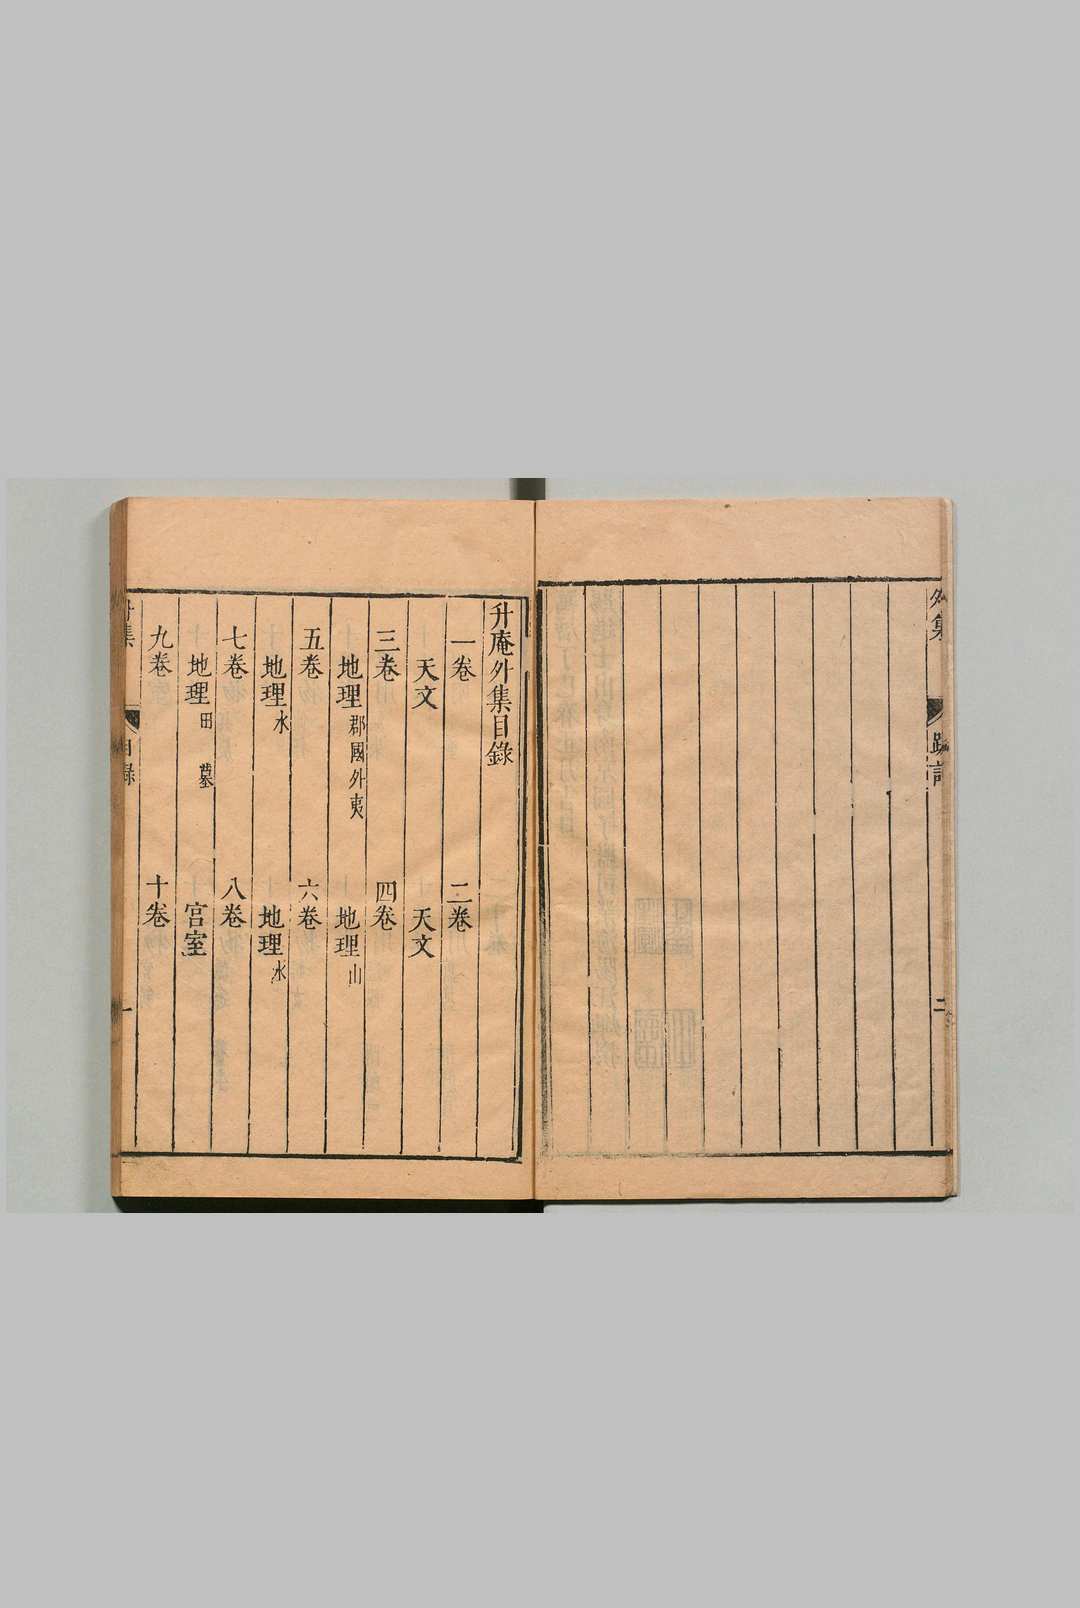 外集
跋語
二
升庵外集目錄
一卷
二卷
天文
天文
三卷
四卷
地理 郡國外夷
地理 山
五卷
六卷
地理 水
地理 水
七卷
八卷
地理 田 墓
宮室
九卷
十卷
外集
目錄
一